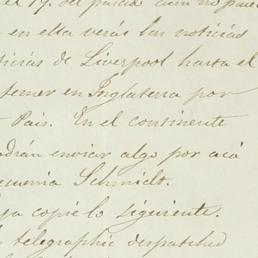 el 19. del pasado
en ella verás las noticias
ticias de Liverpool hasta el
temer en Inglaterra por
Pais. En el continente
odrán enviar algo por acá
Schmidt.
ya copié lo siguiente.
telegraphic despatched